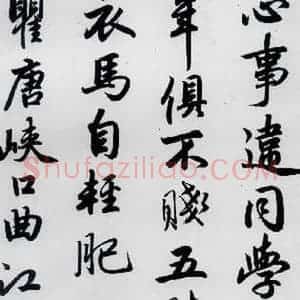 心事違同學
年俱不賤五
衣馬自輕肥
瞿唐峽口曲江
Shufaziliao.com